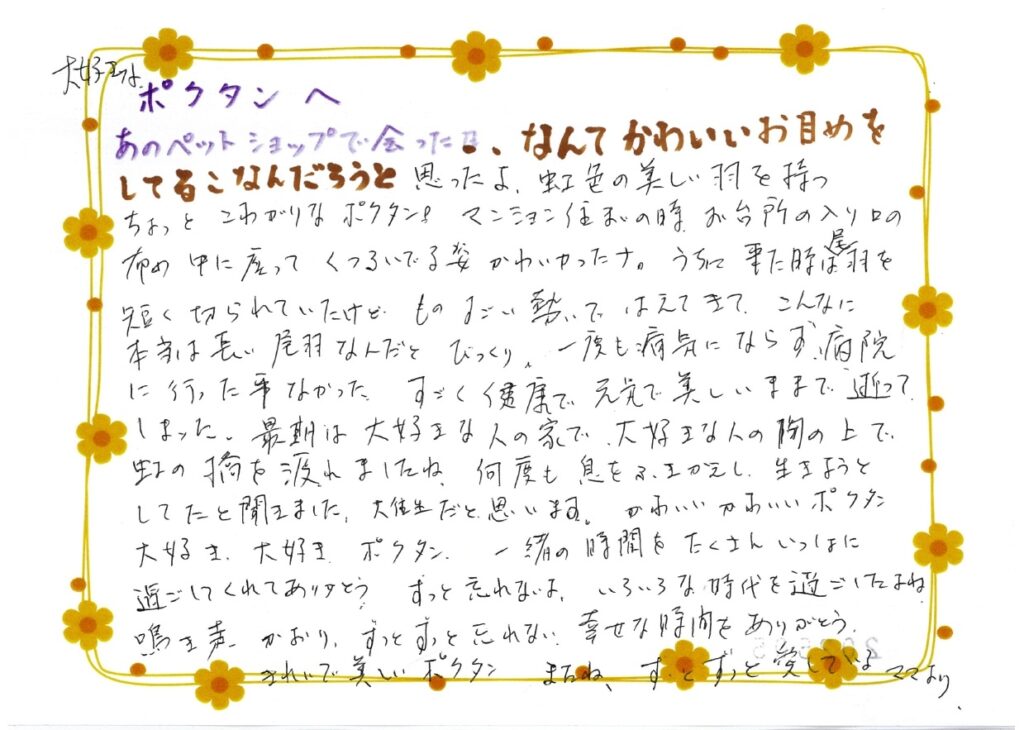 大好きな
ポクタンへ
あのペットショップで会ったな、なんてかわいいお目めを
してるこなんだろうと思ったよ、虹色の美しい羽を持つ
ちょっとこわがりなポクタン。マンション住まいの時お台所の入り口の
布の中に座ってくつろいでる姿かわいかったナ。うちに来た時は尾羽を
短く切られていたけどものすごい勢いではえてきて、こんなに
本当は長い尾羽なんだとびっくり、一度も病気にならず、病院
に行った事なかった、すごく健康で元気で美しいままで逝って
しまった、最期は大好きな人の家で、大好きな人の胸の上で
虹の橋を渡れましたね、何度も息をふきかえし、生きようと
してたと聞きました、大往生だと思います。かわいいかわいいポクタン
大好き、大好き、ポクタン、一緒の時間をたくさんいっぱいに
過ごしてくれてありがとう、ずっと忘れないよ、いろいろな時代を過ごしたよね
鳴き声、かおり、ずっとずっと忘れない、幸せな時間をありがとう、
きれいで美しいポクタン またね、ずっとずっと愛しているよ ママより、